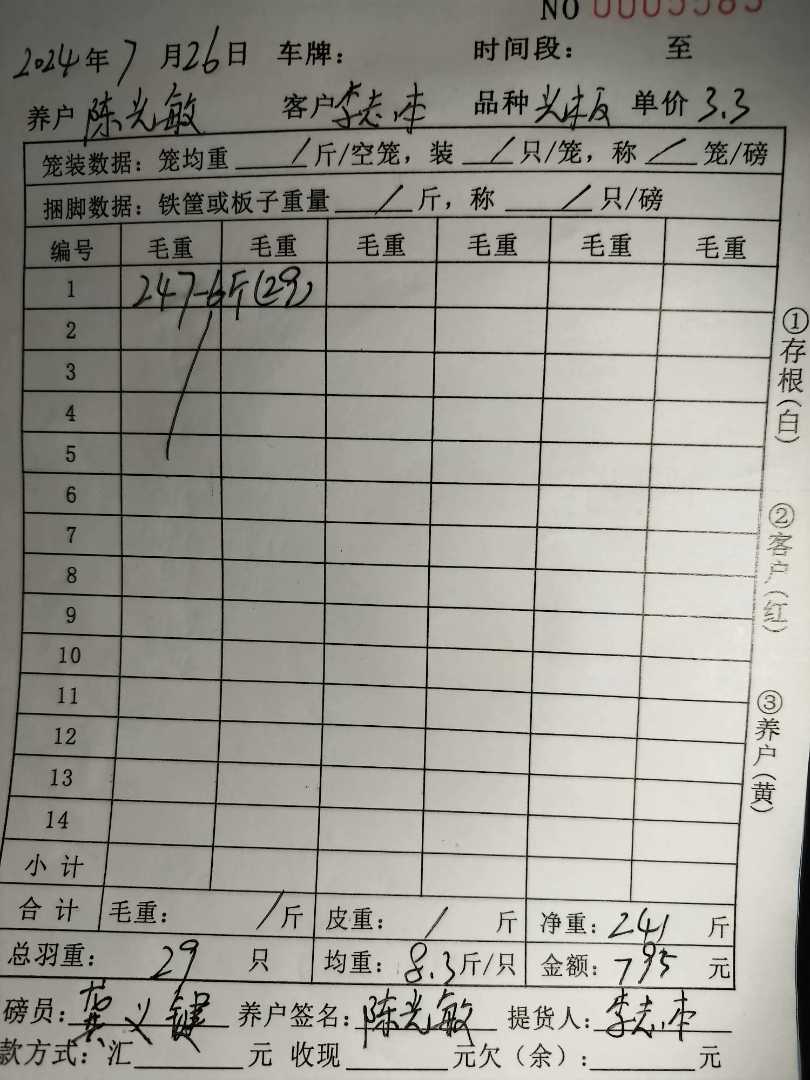 NO 0005585
2024年7月26日 车牌: 时间段: 至
养户 陈光敏 客户 李志本 品种 单价 3.3
笼装数据: 笼均重 / 斤/空笼, 装 / 只/笼, 称 / 笼/磅
捆脚数据: 铁筐或板子重量 / 斤, 称 / 只/磅
编号 毛重 毛重 毛重 毛重 毛重 毛重
1 247-6斤(29)
2
3
4
5
6
7
8
9
10
11
12
13
14
小计
合计 毛重: / 斤 皮重: / 斤 净重: 241 斤
总羽重: 29 只 均重: 8.3 斤/只 金额: 795 元
磅员: 黄义键 养户签名: 陈光敏 提货人: 李志本
款方式: 汇 元 收现 元欠(余): 元
①存根(白)
②客户(红)
③养户(黄)